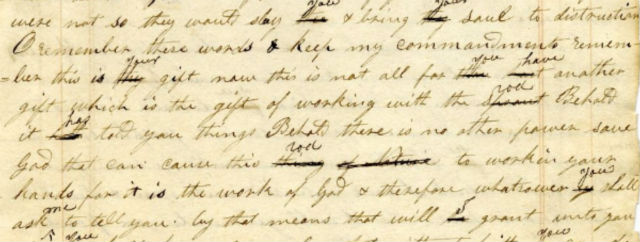 were not so they would slay thee you & bring thy your soul to distruction
O remember these words & keep my commandments remem
=ber this is thy your gift now this is not all for thou you hast have another
gift which is the gift of working with the sprout rod Behold
it hath has told you things Behold there is no other power save
God that can cause this thing of Nature rod to work in your
hands for it is the work of God & therefore whatsoever ye you shall
ask me to tell you by that means that will I grant unto you